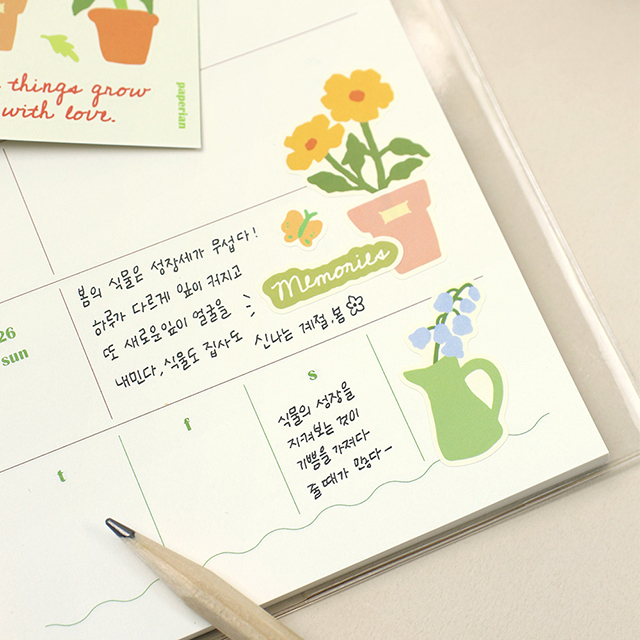 things grow
with love.
paperian
Memories
봄의 식물은 성장세가 무섭다!
하루가 다르게 잎이 커지고
또 새로운잎이 얼굴을
내민다. 식물도 집사도 신나는 계절, 봄
26
sun
t
f
s
식물의 성장을
지켜보는 것이
기쁨을 가져다
줄 때가 많다~